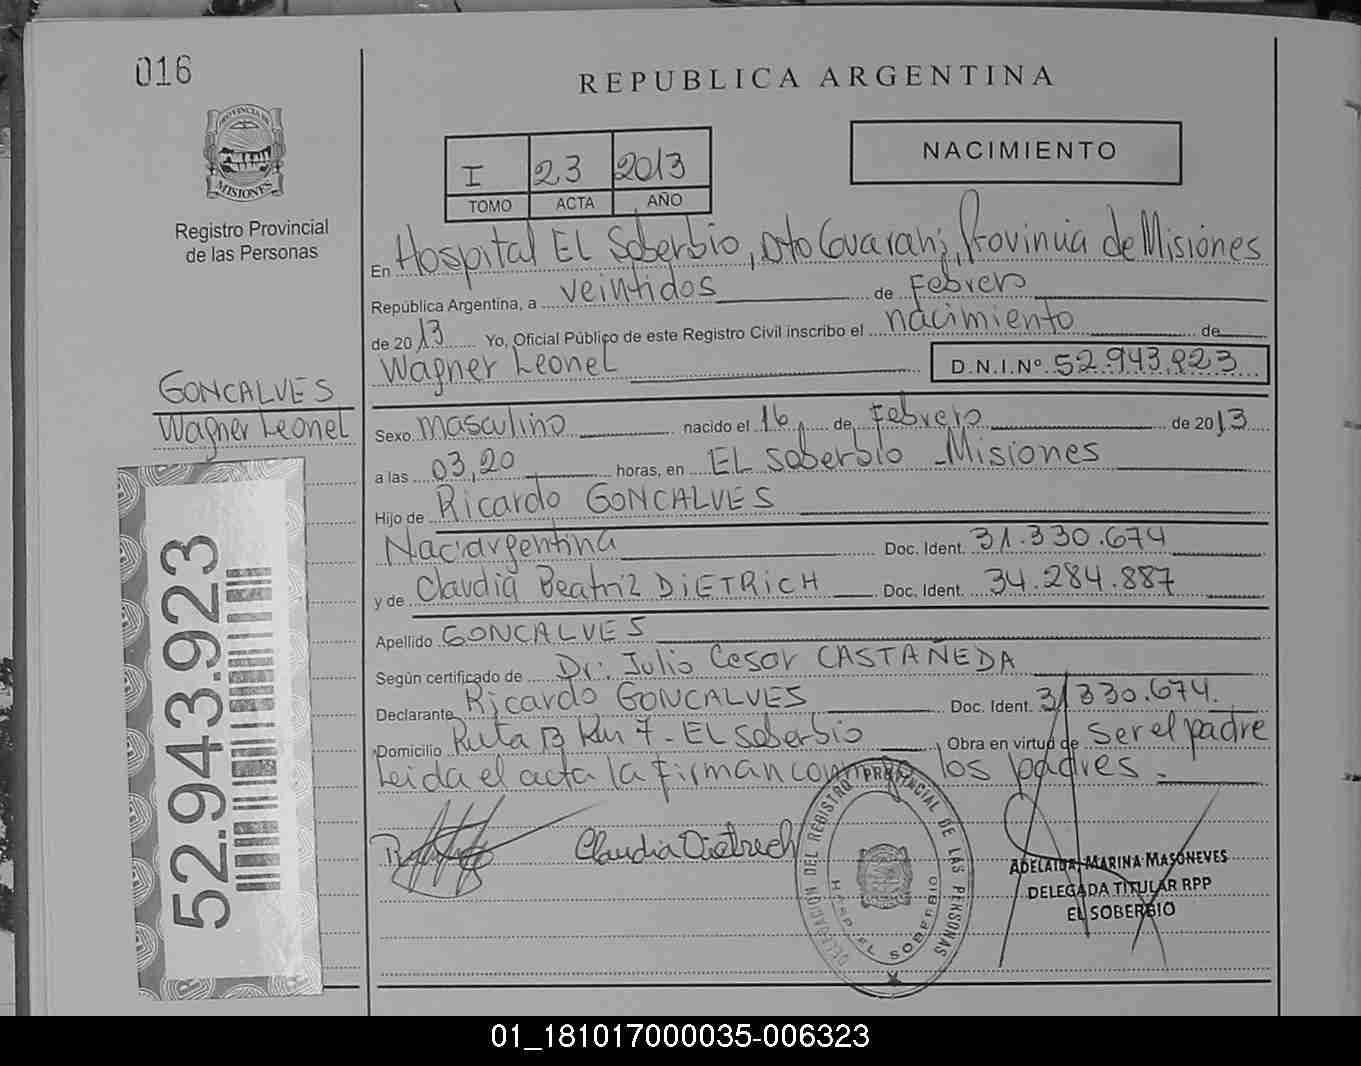 016
REPUBLICA ARGENTINA
PROVINCIA DE
MISIONES
Registro Provincial
de las Personas
I 23 2013
TOMO ACTA AÑO
NACIMIENTO
En Hospital EL Soberbio, Dto Guarani, Provincia de Misiones
República Argentina, a veintidos de Febrero
de 2013 Yo, Oficial Público de este Registro Civil inscribo el nacimiento de
Wagner Leonel D.N.I.Nº 52.943.923
GONCALVES
Wagner Leonel
Sexo masculino nacido el 16 de Febrero de 2013
a las 03,20 horas, en EL Soberbio - Misiones
Hijo de Ricardo GONCALVES
Nac: argentina Doc. Ident. 31.330.674
y de Claudia Beatriz DiETRiCH Doc. Ident. 34.284.887
Apellido GONCALVES
Según certificado de Dr: Julio Cesar CASTAÑEDA
Declarante Ricardo GONCALVES Doc. Ident. 31330.674.
Domicilio Ruta 13 Km 7 - EL Soberbio Obra en virtud de Ser el padre
Leida el acta la firman conmigo los padres.
Claudia Dietrich
DELEGACIÓN DEL REGISTRO PROVINCIAL DE LAS PERSONAS
HOSP. EL SOBERBIO
ADELAIDA MARINA MASONEVES
DELEGADA TITULAR RPP
EL SOBERBIO
52.943.923
01_181017000035-006323